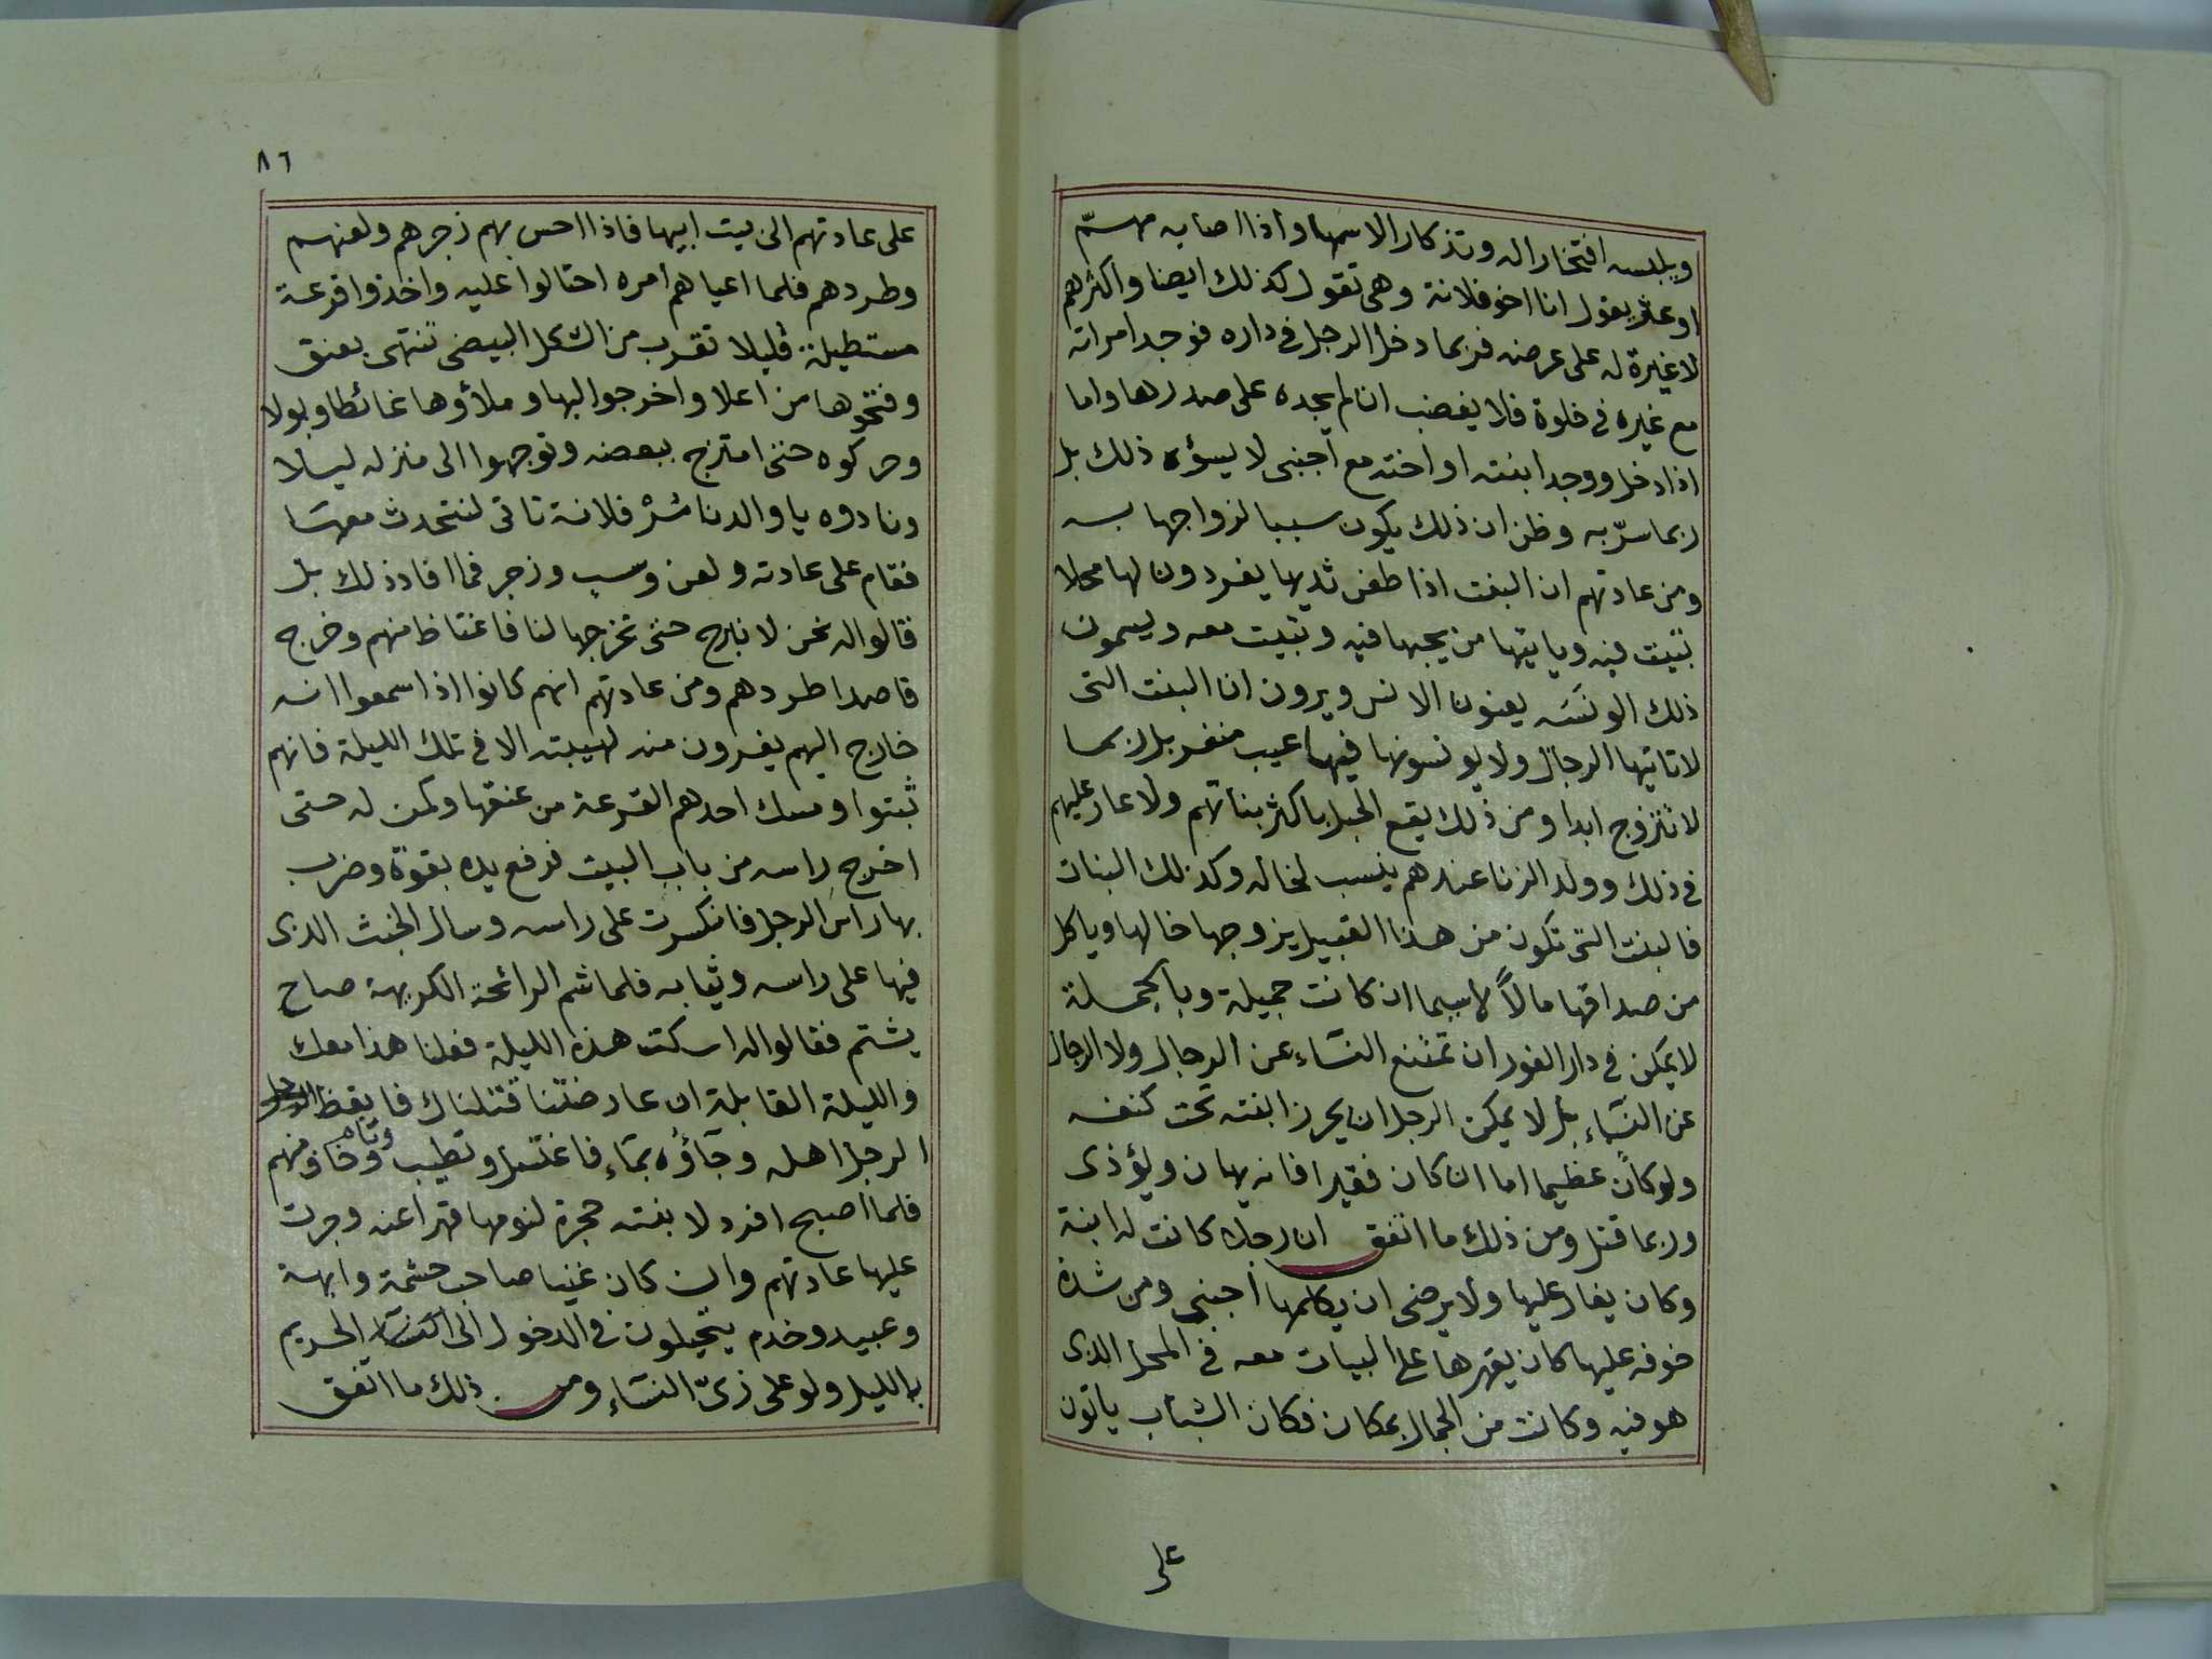 ويلبسه افتخارا له وتذكارا لاسمها واذا اصابه مهمّ
او عثر يقول انا اخو فلانة وهى تقول كذلك ايضا واكثرهم
لا غيرة له على عرضه فربما دخل الرجل فى داره فوجد امراته
مع غيره فى خلوة فلا يغضب ان لم يجده على صدرها واما
اذا دخل ووجد ابنته او اخته مع اجنبى لا يسؤه ذلك بل
ربما سرّ به وظن ان ذلك يكون سببا لزواجها به
ومن عادتهم ان البنت اذا طعن ثديها يفردون لها محلا
تبيت فيه وياتيها من يحبها فيه وتبيت معه ويسمون
ذلك الونسَه يعنون الانس ويرون ان البنت التى
لا تاتيها الرجال ولا يونسونها فيها عيب منفر بل ربما
لا تتزوج ابدا ومن ذلك يقع الحبل باكثر بناتهم ولا عار عليهم
فى ذلك وولد الزنا عندهم ينسب لخاله وكذلك البنات
فالبنت التى تكون من هذا القبيل يزوجها خالها وياكل
من صداقها مالاً لاسيما ان كانت جميلة وبالجملة
لا يمكن فى دار الفور ان تمتنع النسَاء عن الرجال ولا الرجال
عن النسَاء بل لا يمكن الرجل ان يحرز ابنته تحت كنفه
ولو كان عظيما اما ان كان فقيرا فانه يهان ويؤذى
وربما قتل ومن ذلك ما اتفق ان رجلا كانت له ابنة
وكان يغار عليها ولا يرضى ان يكلمها اجنبى ومن شدة
خوفه عليها كان يقهرها على البيات معه فى المحل الذى
هو فيه وكانت من الجمال بمكان فكان الشباب ياتون
على
٨٦
على عادتهم الى بيت ابيها فاذا احس بهم زجرهم ولعنهم
وطردهم فلما اعياهم امره احتالوا عليه واخذوا قرعة
مستطيلة قليلا تقرب من الشكل البيضى تنتهى بعنق
وفتحوها من اعلا واخرجوا لبها وملأوها غائطا وبولا
وحركوه حتى امتزج ببعضه وتوجهوا الى منزله ليلا
ونادوه يا والدنا مُرْ فلانة تاتى لنتحدث معهَا
فقام على عادته ولعن وسب وزجر فما افاد ذلك بل
قالوا له نحن لا نبرح حتى تخرجها لنا فاغتاظ منهم وخرج
قاصدا طردهم ومن عادتهم انهم كانوا اذا سمعوا انه
خارج اليهم يفرون منه لهيبته الا فى تلك الليلة فانهم
ثبتوا ومسك احدهم القرعة من عنقها وكمن له حتى
اخرج راسه من باب البيت فرفع يده بقوّة وضرب
بها راس الرجل فانكسرت على راسه وسال الخبث الذى
فيها على راسه وثيابه فلما شم الرائحة الكريهة صاح
يشتم فقالوا له اسكت هذه الليلة فعلنا هذا معك
والليلة القابلة ان عارضتنا قتلناك فايقظ
الرجل اهله وجآؤه بمَاء فاغتسل وتطيب ونام وخاف منهم
فلما اصبح افرد لابنته حجرة لنومها قهرا عنه وجرت
عليها عادتهم وان كان غنيا صاحب حشمة وابهة
وعبيد وخدم يتحيلون فى الدخول الى الحريم
بالليل ولو على زىّ النسَاء ومن ذلك ما اتفق